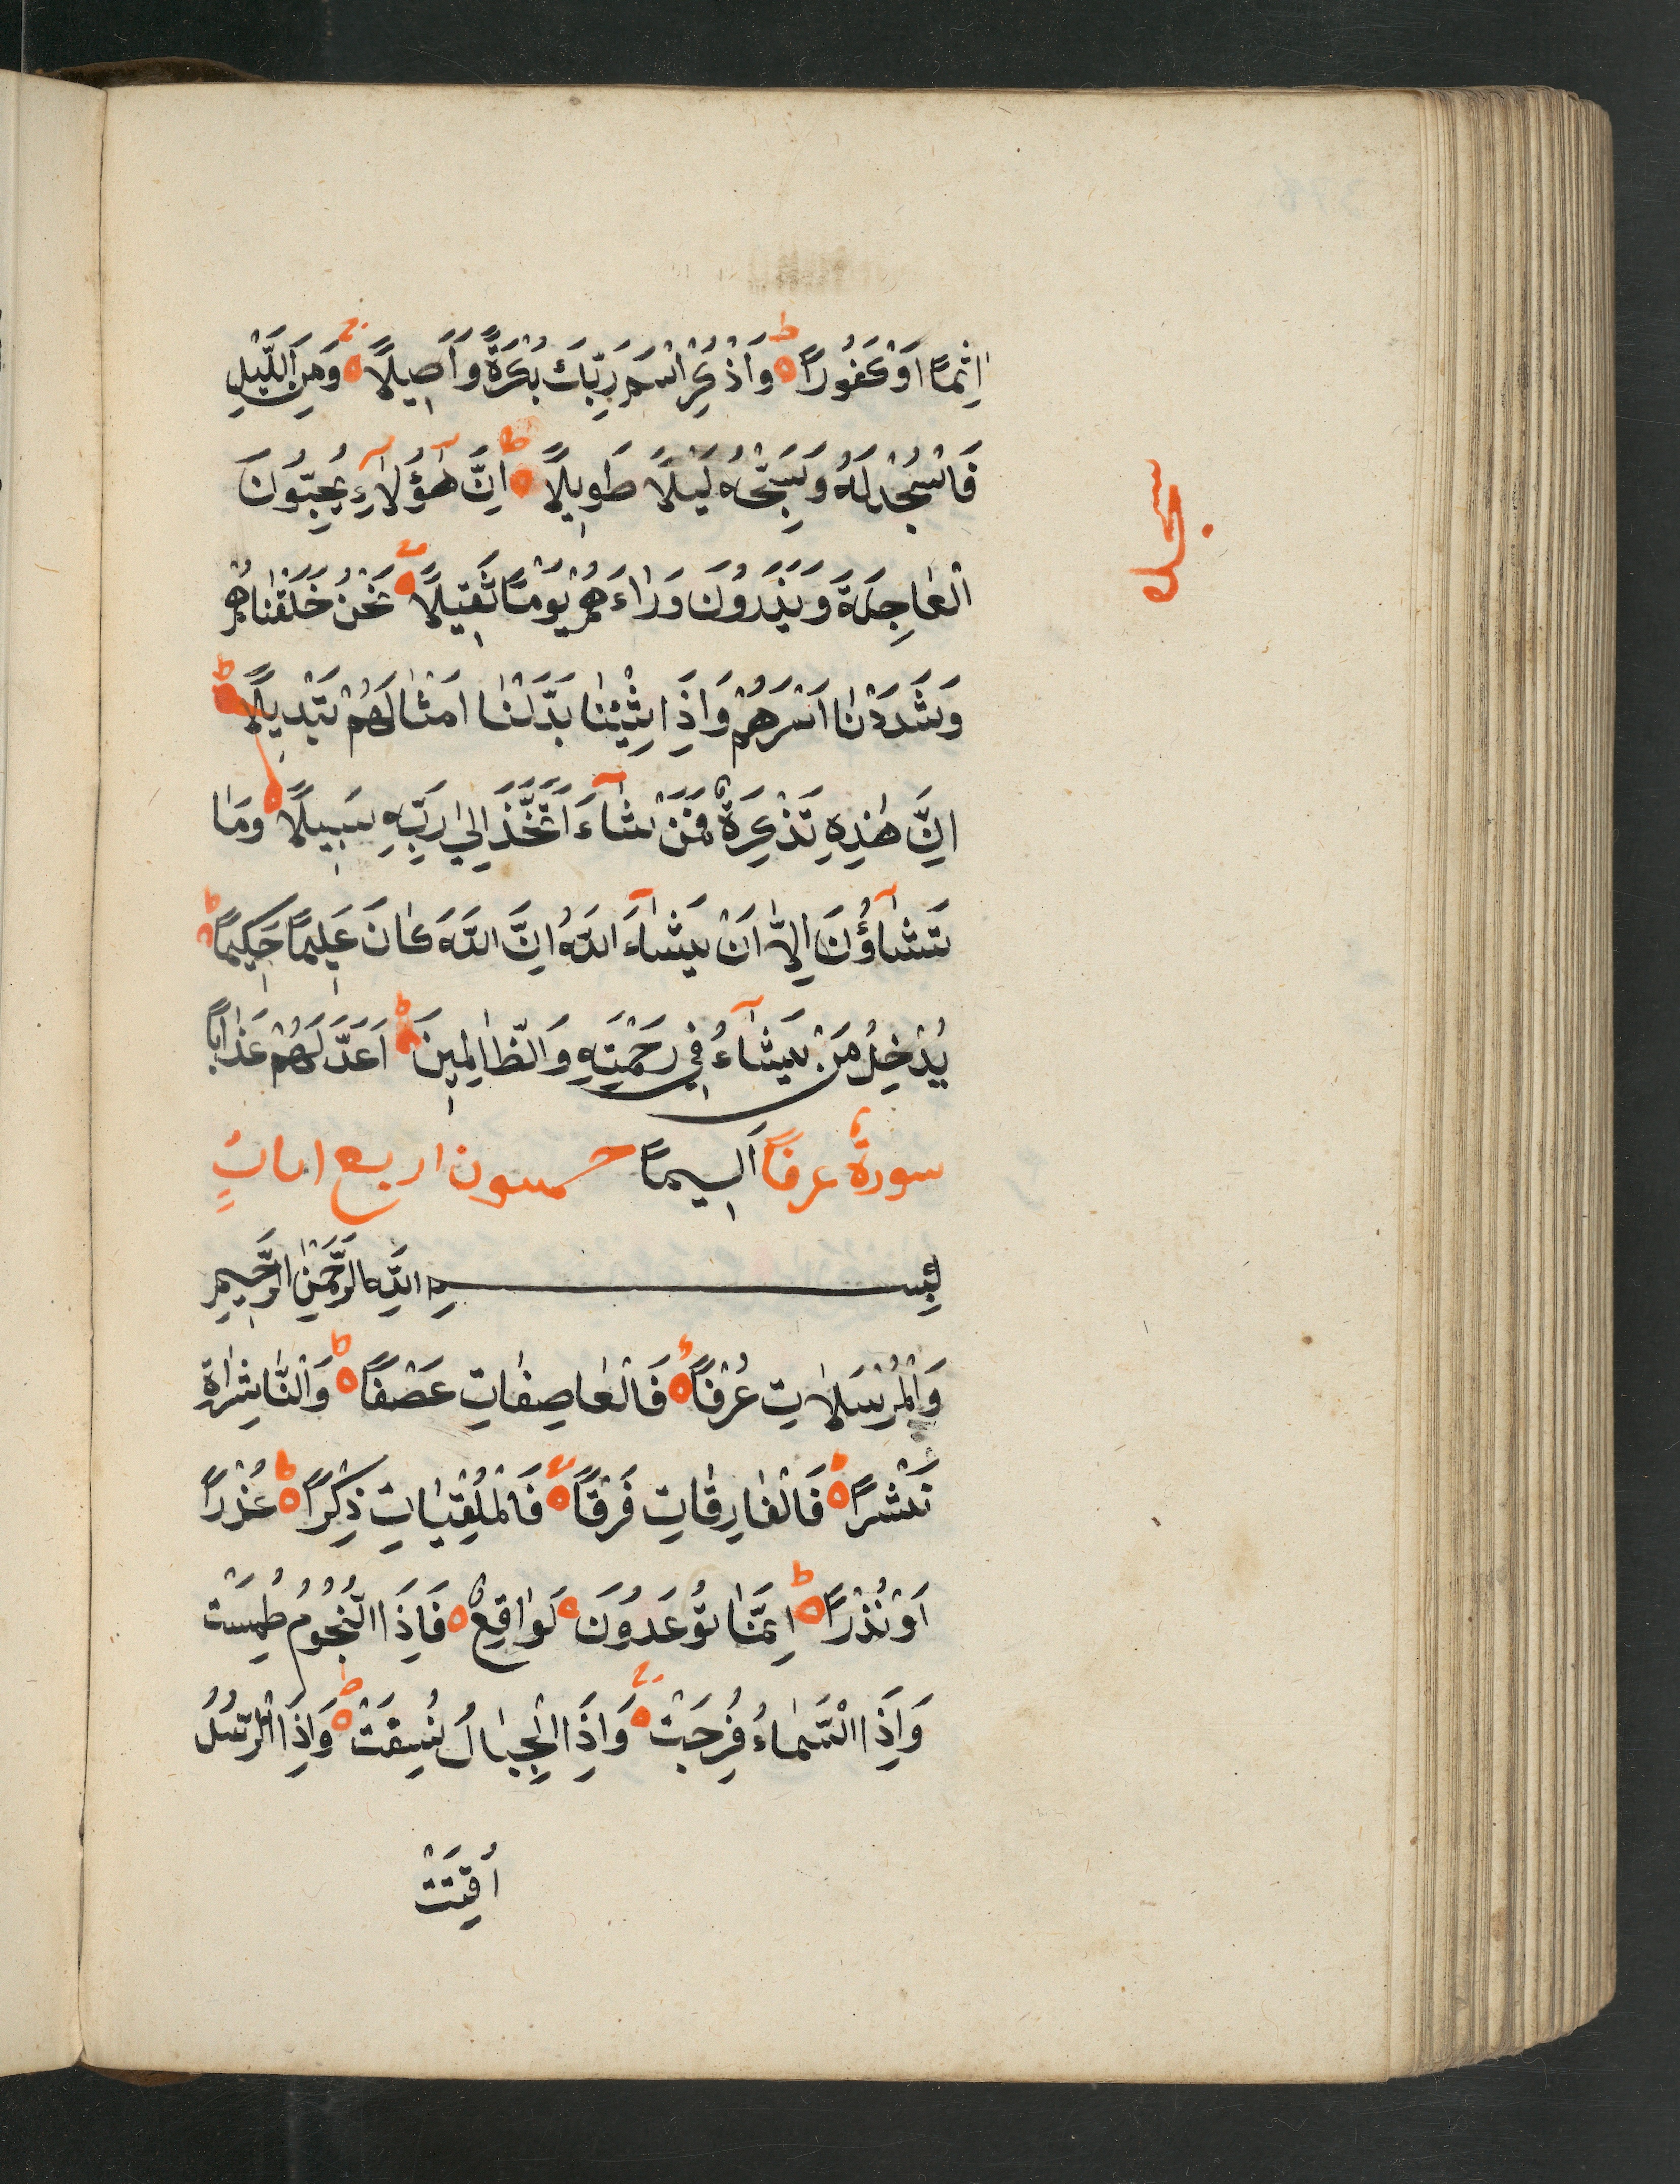 اِثْمًا اَوْ كَفُورًا وَاذْكُرِ اسْمَ رَبِّكَ بُكْرَةً وَاَصِيلًا وَمِنَ اللَّيْلِ
فَاسْجُدْ لَهُ وَسَبِّحْهُ لَيْلًا طَوِيلًا اِنَّ هٰٓؤُلَآءِ يُحِبُّونَ
الْعَاجِلَةَ وَيَذَرُونَ وَرَاءَهُمْ يَوْمًا ثَقِيلًا نَحْنُ خَلَقْنَاهُمْ
وَشَدَدْنَا اَسْرَهُمْ وَاِذَا شِئْنَا بَدَّلْنَا اَمْثَالَهُمْ تَبْدِيلًا
اِنَّ هٰذِهِ تَذْكِرَةٌ فَمَنْ شَآءَ اتَّخَذَ اِلٰى رَبِّهِ سَبِيلًا وَمَا
تَشَآؤُنَ اِلَّا اَنْ يَشَآءَ اللَّهُ اِنَّ اللَّهَ كَانَ عَلِيمًا حَكِيمًا
يُدْخِلُ مَنْ يَشَآءُ فِي رَحْمَتِهِ وَالظَّالِمِينَ اَعَدَّ لَهُمْ عَذَابًا
سورة عرفًا اَلِيمًا خمسون اربع ايات
بِسْمِ اللَّهِ الرَّحْمٰنِ الرَّحِيمِ
وَالْمُرْسَلَاتِ عُرْفًا فَالْعَاصِفَاتِ عَصْفًا وَالنَّاشِرَاتِ
نَشْرًا فَالْفَارِقَاتِ فَرْقًا فَالْمُلْقِيَاتِ ذِكْرًا عُذْرًا
اَوْ نُذْرًا اِنَّمَا تُوعَدُونَ لَوَاقِعٌ فَاِذَا النُّجُومُ طُمِسَتْ
وَاِذَا السَّمَاءُ فُرِجَتْ وَاِذَا الْجِبَالُ نُسِفَتْ وَاِذَا الرُّسُلُ
اُقِّتَتْ
سجده